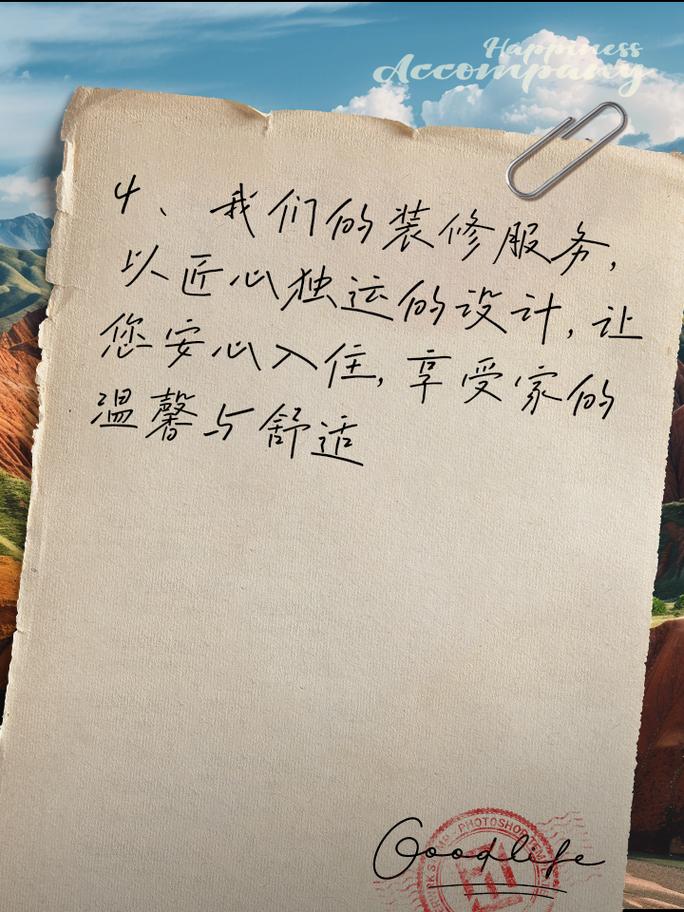 Happiness
Accompany
4、我们的装修服务,
以匠心独运的设计,让
您安心入住,享受家的
温馨与舒适
PHOTOSHOP
Goodlife